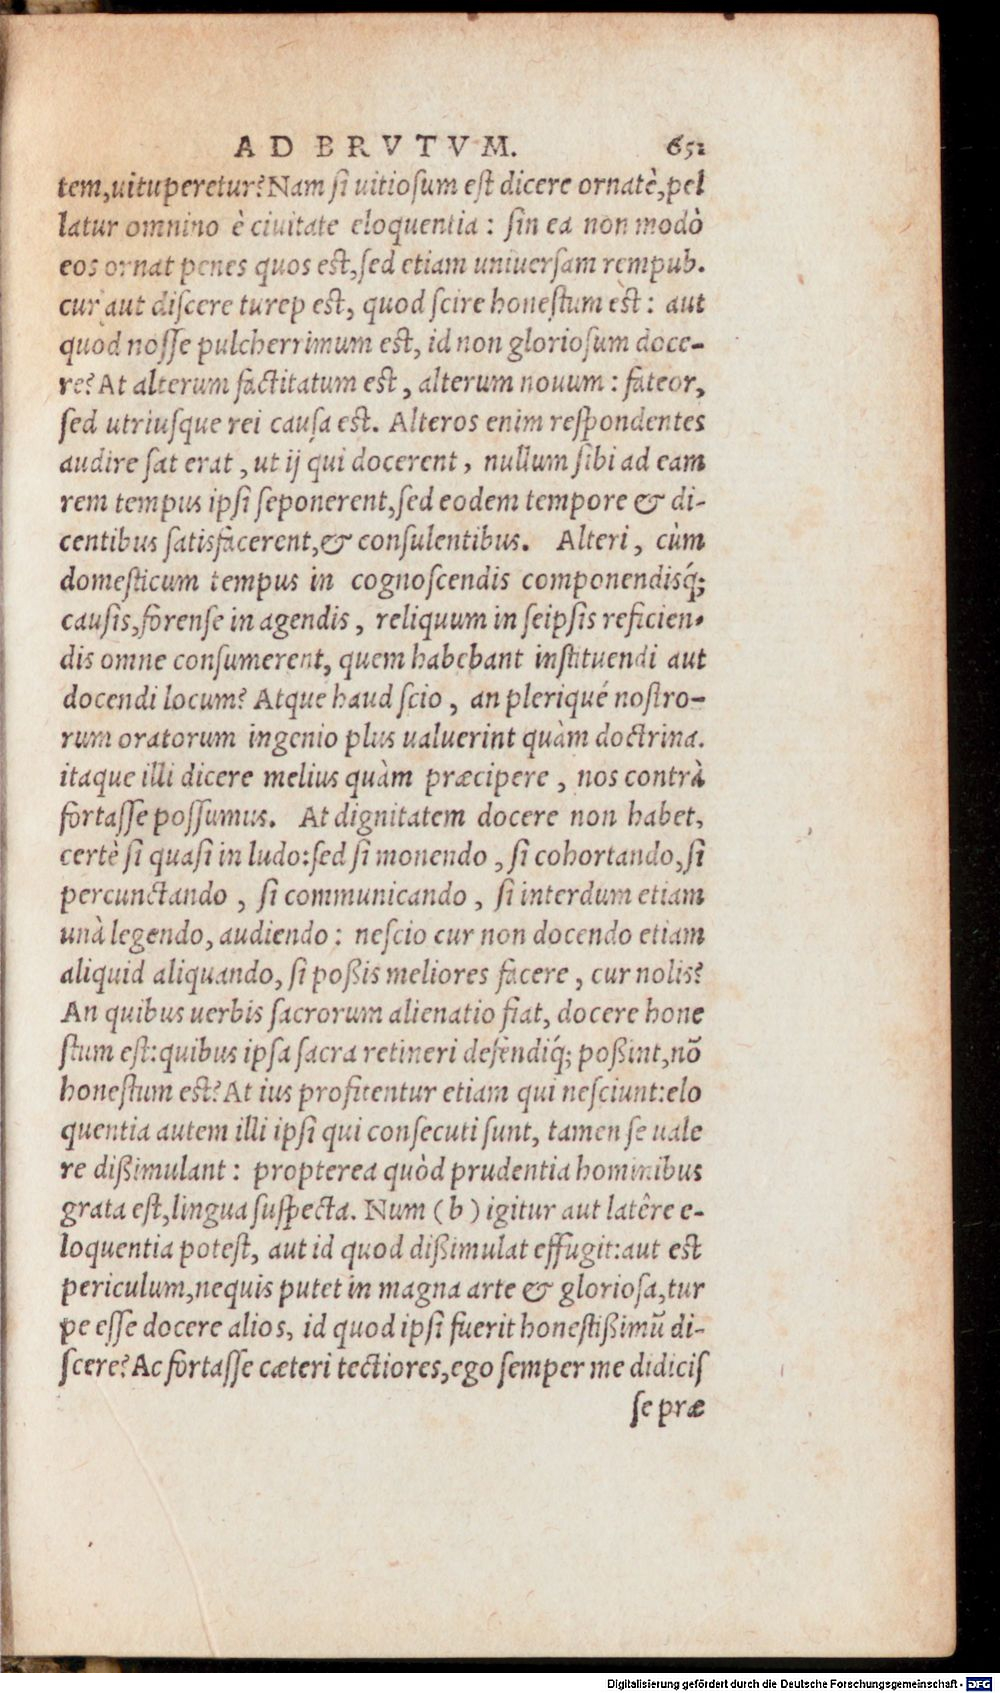 AD BRVTVM. 651
tem,uituperetur?Nam si uitiosum est dicere ornatè,pel
latur omnino è ciuitate eloquentia: sin ea non modò
eos ornat penes quos est,sed etiam uniuersam rempub.
cur aut discere turep est, quod scire honestum est: aut
quod nosse pulcherrimum est, id non gloriosum doce-
re? At alterum factitatum est, alterum nouum: fateor,
sed utriusque rei causa est. Alteros enim respondentes
audire sat erat, ut ij qui docerent, nullum sibi ad eam
rem tempus ipsi seponerent,sed eodem tempore & di-
centibus satisfacerent,& consulentibus. Alteri, cùm
domesticum tempus in cognoscendis componendisq́;
causis,forense in agendis, reliquum in seipsis reficien-
dis omne consumerent, quem habebant instituendi aut
docendi locum? Atque haud scio, an pleriqué nostro-
rum oratorum ingenio plus ualuerint quàm doctrina.
itaque illi dicere melius quàm præcipere, nos contrà
fortasse possumus. At dignitatem docere non habet,
certè si quasi in ludo:sed si monendo, si cohortando,si
percunctando, si communicando, si interdum etiam
unà legendo, audiendo: nescio cur non docendo etiam
aliquid aliquando, si poßis meliores facere, cur nolis?
An quibus uerbis sacrorum alienatio fiat, docere hone
stum est:quibus ipsa sacra retineri defendiq́; poßint,nõ
honestum est? At ius profitentur etiam qui nesciunt:elo
quentia autem illi ipsi qui consecuti sunt, tamen se uale
re dißimulant: propterea quòd prudentia hominibus
grata est,lingua suspecta. Num (b) igitur aut latêre e-
loquentia potest, aut id quod dißimulat effugit:aut est
periculum,nequis putet in magna arte & gloriosa,tur
pe esse docere alios, id quod ipsi fuerit honestißimũ di-
scere? Ac fortasse cæteri tectiores,ego semper me didicis
se præ
Digitalisierung gefördert durch die Deutsche Forschungsgemeinschaft - DFG